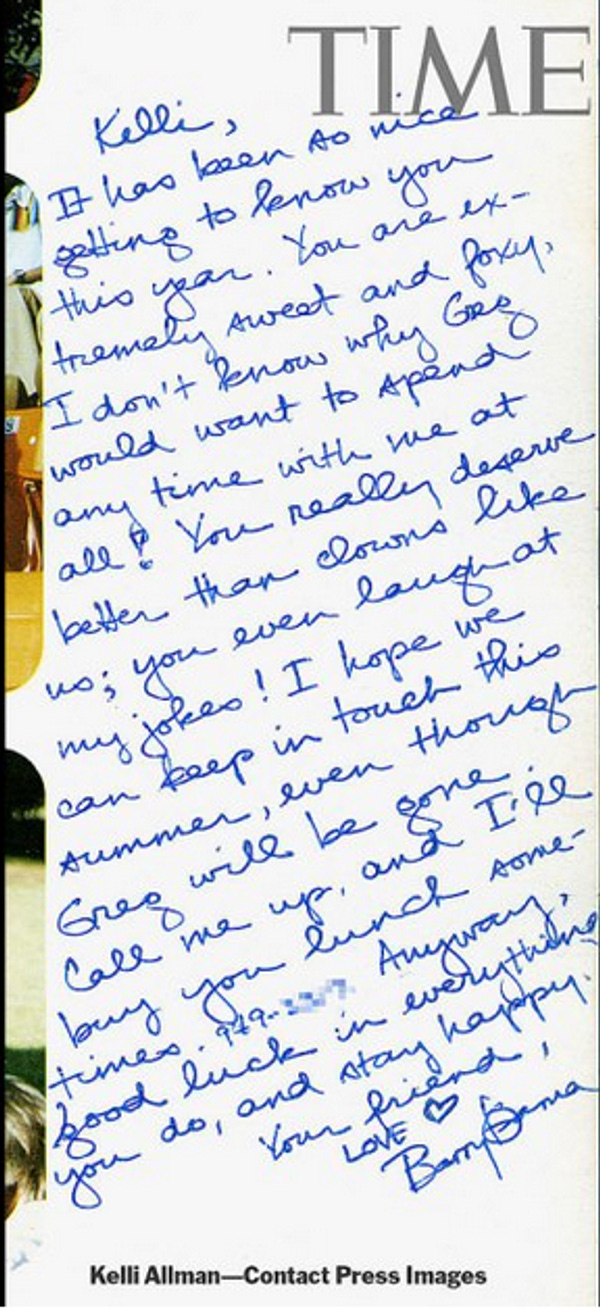 TIME
Kelli,
It has been so nice
getting to know you
this year. You are ex-
tremely sweet and foxy,
I don't know why Greg
would want to spend
any time with me at
all! You really deserve
better than clowns like
us; you even laugh at
my jokes! I hope we
can keep in touch this
summer, even though
Greg will be gone.
Call me up, and I'll
buy you lunch some-
times. 979- Anyway,
good luck in everything
you do, and stay happy.
Your friend,
LOVE
Barry Obama
Kelli Allman—Contact Press Images